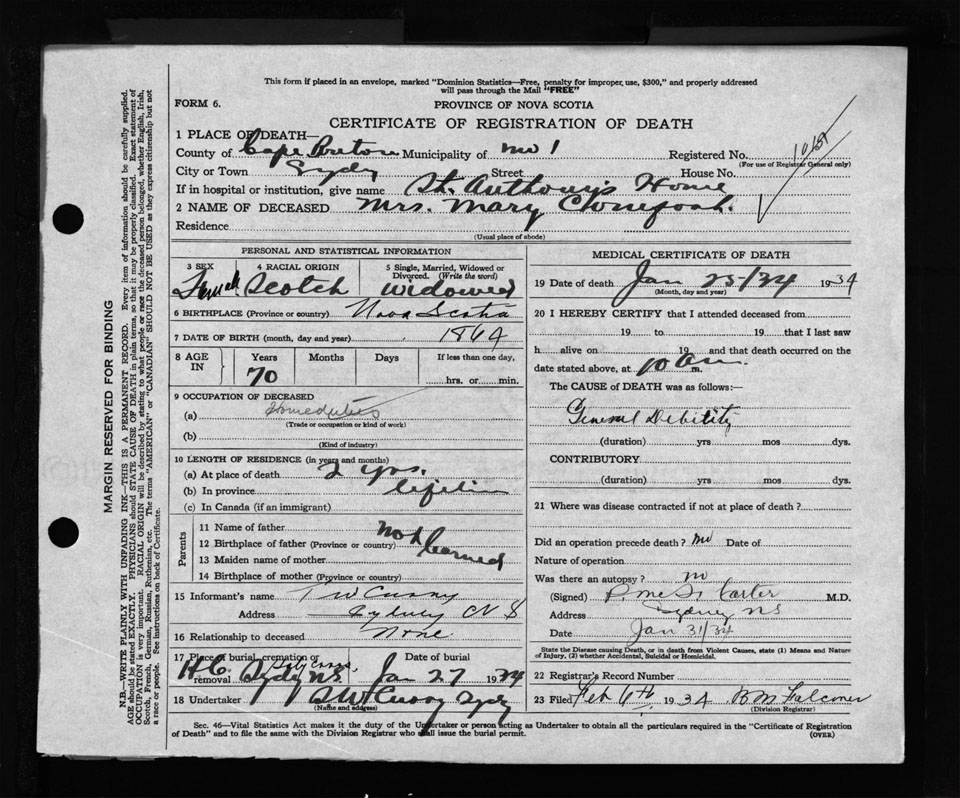 This form if placed in an envelope, marked "Dominion Statistics—Free, penalty for improper use, $300," and properly addressed
will pass through the Mail "FREE"
FORM 6.
PROVINCE OF NOVA SCOTIA
CERTIFICATE OF REGISTRATION OF DEATH
1 PLACE OF DEATH—
County of Cape Breton Municipality of No 1 Registered No.
(For use of Registrar General only)
City or Town Sydy Street House No.
If in hospital or institution, give name St. Anthony's Home
2 NAME OF DECEASED Mrs. Mary
Residence
(Usual place of abode)
PERSONAL AND STATISTICAL INFORMATION
3 SEX 4 RACIAL ORIGIN 5 Single, Married, Widowed or Divorced. (Write the word)
Female Scotch Widowed
6 BIRTHPLACE (Province or country) Nova Scotia
7 DATE OF BIRTH (month, day and year) 1864
8 AGE IN Years Months Days If less than one day,
70 hrs. or min.
9 OCCUPATION OF DECEASED
(a) Homeduties
(Trade or occupation or kind of work)
(b)
(Kind of industry)
10 LENGTH OF RESIDENCE (in years and months)
(a) At place of death 2 yrs.
(b) In province lifetim
(c) In Canada (if an immigrant)
Parents
11 Name of father
12 Birthplace of father (Province or country)
13 Maiden name of mother
14 Birthplace of mother (Province or country)
Not learned
15 Informant's name T W Curry
Address Sydney C N S
16 Relationship to deceased None
17 Place of burial, cremation or removal Date of burial
H.C. Holy Cross, Sydy N.S. Jan 27 1934
18 Undertaker W Curry Sydy
(Name and address)
MEDICAL CERTIFICATE OF DEATH
19 Date of death Jan 25/34 1934
(Month, day and year)
20 I HEREBY CERTIFY that I attended deceased from
19 to 19 that I last saw
h alive on 19 and that death occurred on the
date stated above, at 10 am m.
The CAUSE of DEATH was as follows:—
General Debility
(duration) yrs mos dys.
CONTRIBUTORY
(duration) yrs mos dys.
21 Where was disease contracted if not at place of death?
Did an operation precede death? no Date of
Nature of operation
Was there an autopsy? no
(Signed) Carter M.D.
Address Sydney NS
Date Jan 31/34
State the Disease causing Death, or in death from Violent Causes, state (1) Means and Nature
of Injury, (2) whether Accidental, Suicidal or Homicidal.
22 Registrar's Record Number
23 Filed Feb 6th 1934 B M Falconer
(Division Registrar)
Sec. 46—Vital Statistics Act makes it the duty of the Undertaker or person acting as Undertaker to obtain all the particulars required in the "Certificate of Registration
of Death" and to file the same with the Division Registrar who shall issue the burial permit. (OVER)
MARGIN RESERVED FOR BINDING
N.B.—WRITE PLAINLY WITH UNFADING INK—THIS IS A PERMANENT RECORD. Every item of information should be carefully supplied.
AGE should be stated EXACTLY. PHYSICIANS should STATE CAUSE OF DEATH in plain terms, so that it may be properly classified. Exact statement of
OCCUPATION is very important. RACIAL ORIGIN will be described by stating to what people or race the deceased person belonged, whether English, Irish,
Scotch, French, German, Russian, Ruthenian, etc. The terms "AMERICAN" or "CANADIAN" SHOULD NOT BE USED as they express citizenship but not
a race or people. See instructions on back of Certificate.